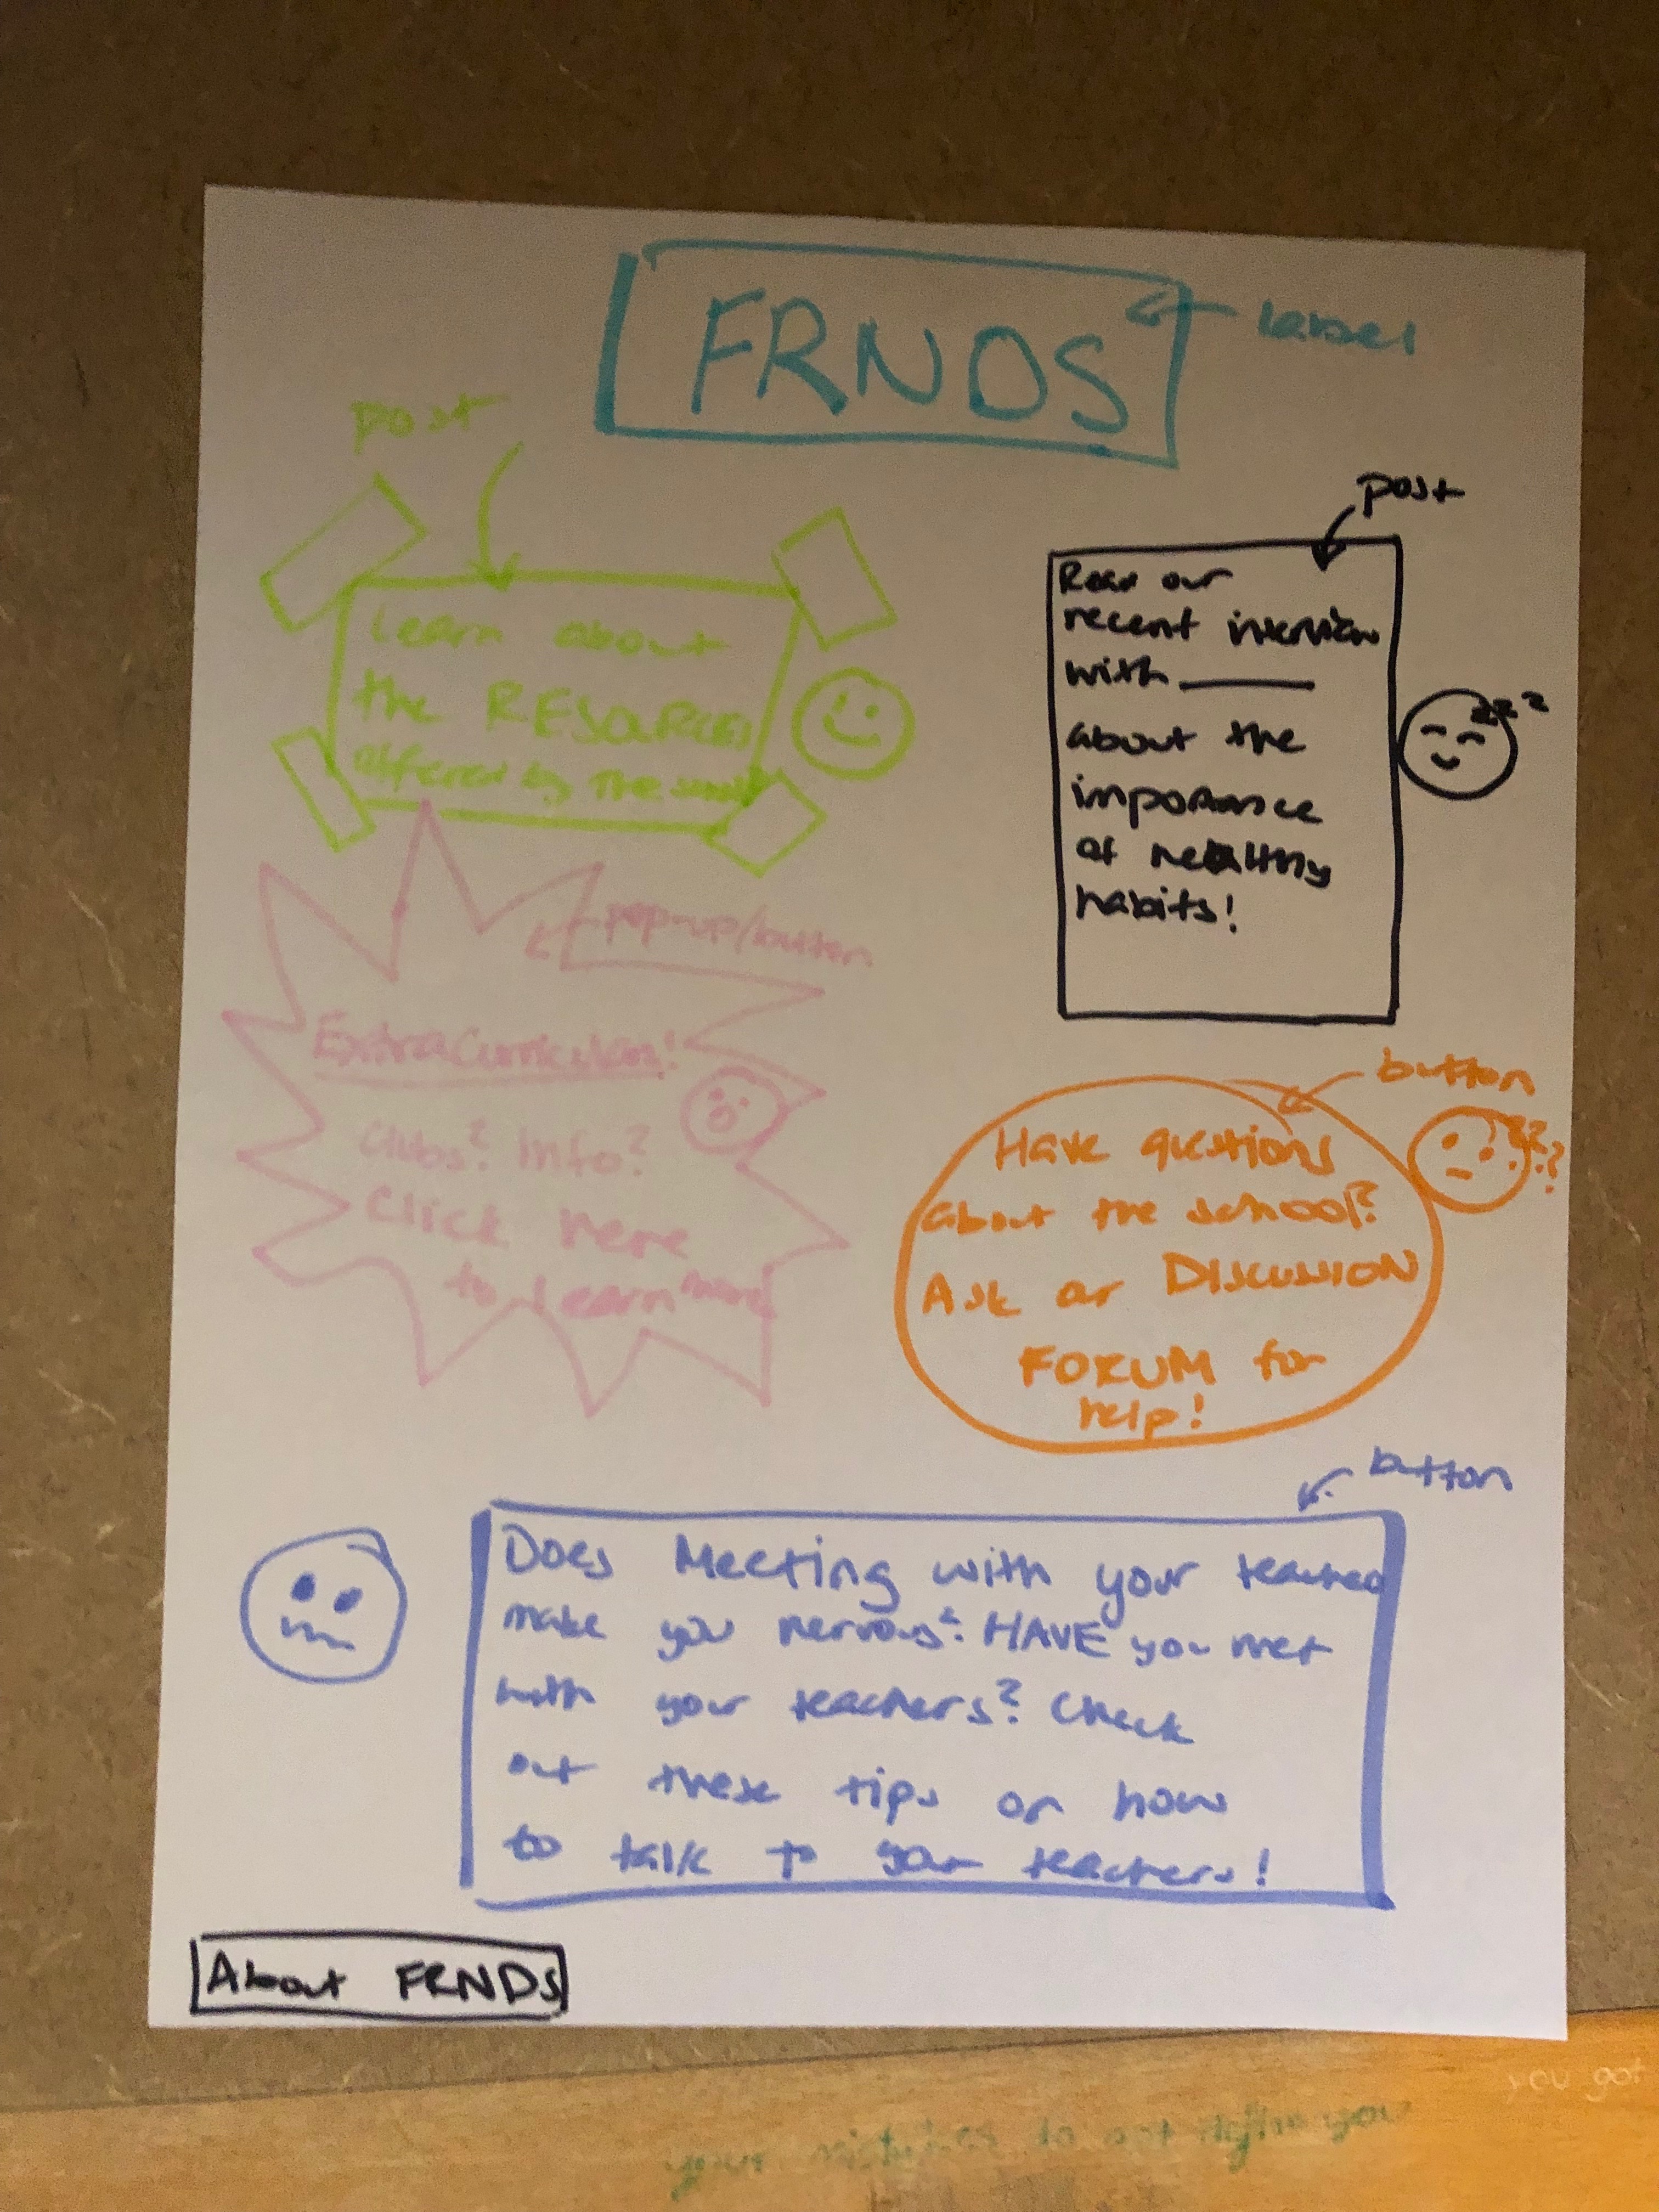 FRNDS
label
post
Learn about
the RESOURCES
offered by the school
post
Read our
recent interview
with ______
about the
importance
of healthy
habits!
zzz
pop-up/button
Extracurricular!
Clubs? Info?
Click here
to learn more!
button
Have questions
about the school?
Ask or DISCUSSION
FORUM for
help!
???
button
Does Meeting with your teacher
make you nervous? HAVE you met
with your teachers? Check
out these tips on how
to talk to your teachers!
About FRNDS
you got
your mistakes do not define you